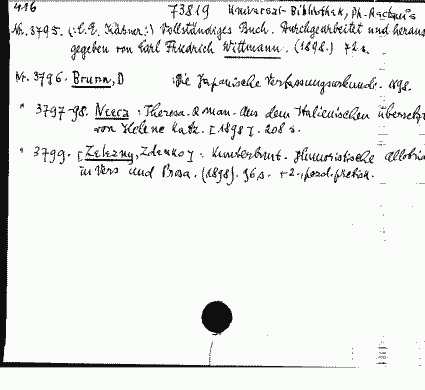 416 73819 Universal-Bibliothek, Ph. Reclam's
Nr. 3795. (:C. E. Kásner:) Vollständiges Buch. Durchgearbeitet und heraus
gegeben von Carl Friedrich Wittmann. (1898.) 72 s.
Nr. 3796. Brunn, D Die Japanische Verfassungsurkunde. 1898.
" 3797-98. Neera: Theresa. Roman. Aus dem Italienischen übersetzt
von Helene Katz. [1898]. 208 s.
" 3799. [Zelezny, Zdenko]: Kunterbunt. Humoristische Allotria
in Vers und Prosa. (1898). 96 s. +2